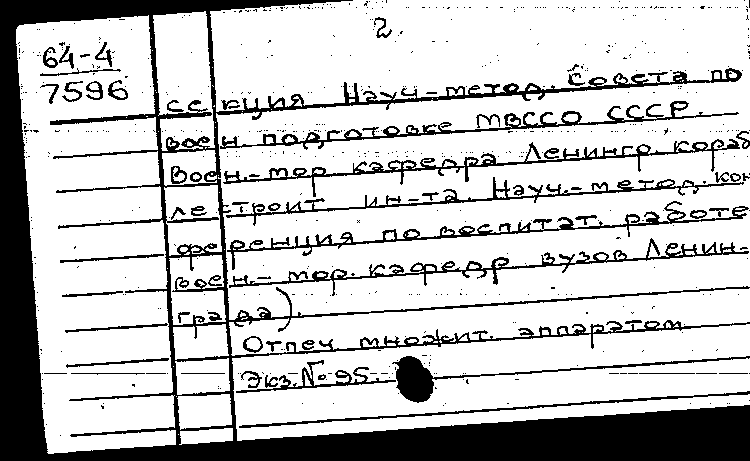 2.
64-4
7596
секция Науч-метод. Совета по
воен. подготовке МВССО СССР.
Воен.-мор. кафедра Ленингр. кораб
лестроит. ин-та. Науч.-метод. кон
ференция по воспитат. работе
воен.-мор. кафедр вузов Ленин-
града).
Отпеч. множит. аппаратом
Экз. № 95.